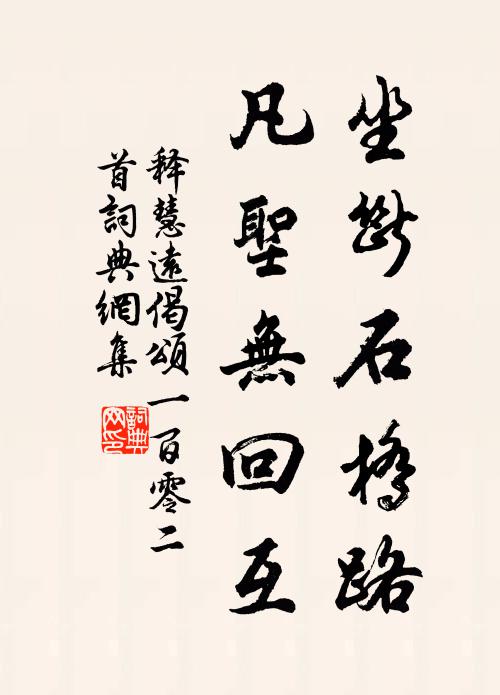 坐斷石橋路
凡聖無回互
释慧遠偈頌一百零二
首詞典網集
詞典網印